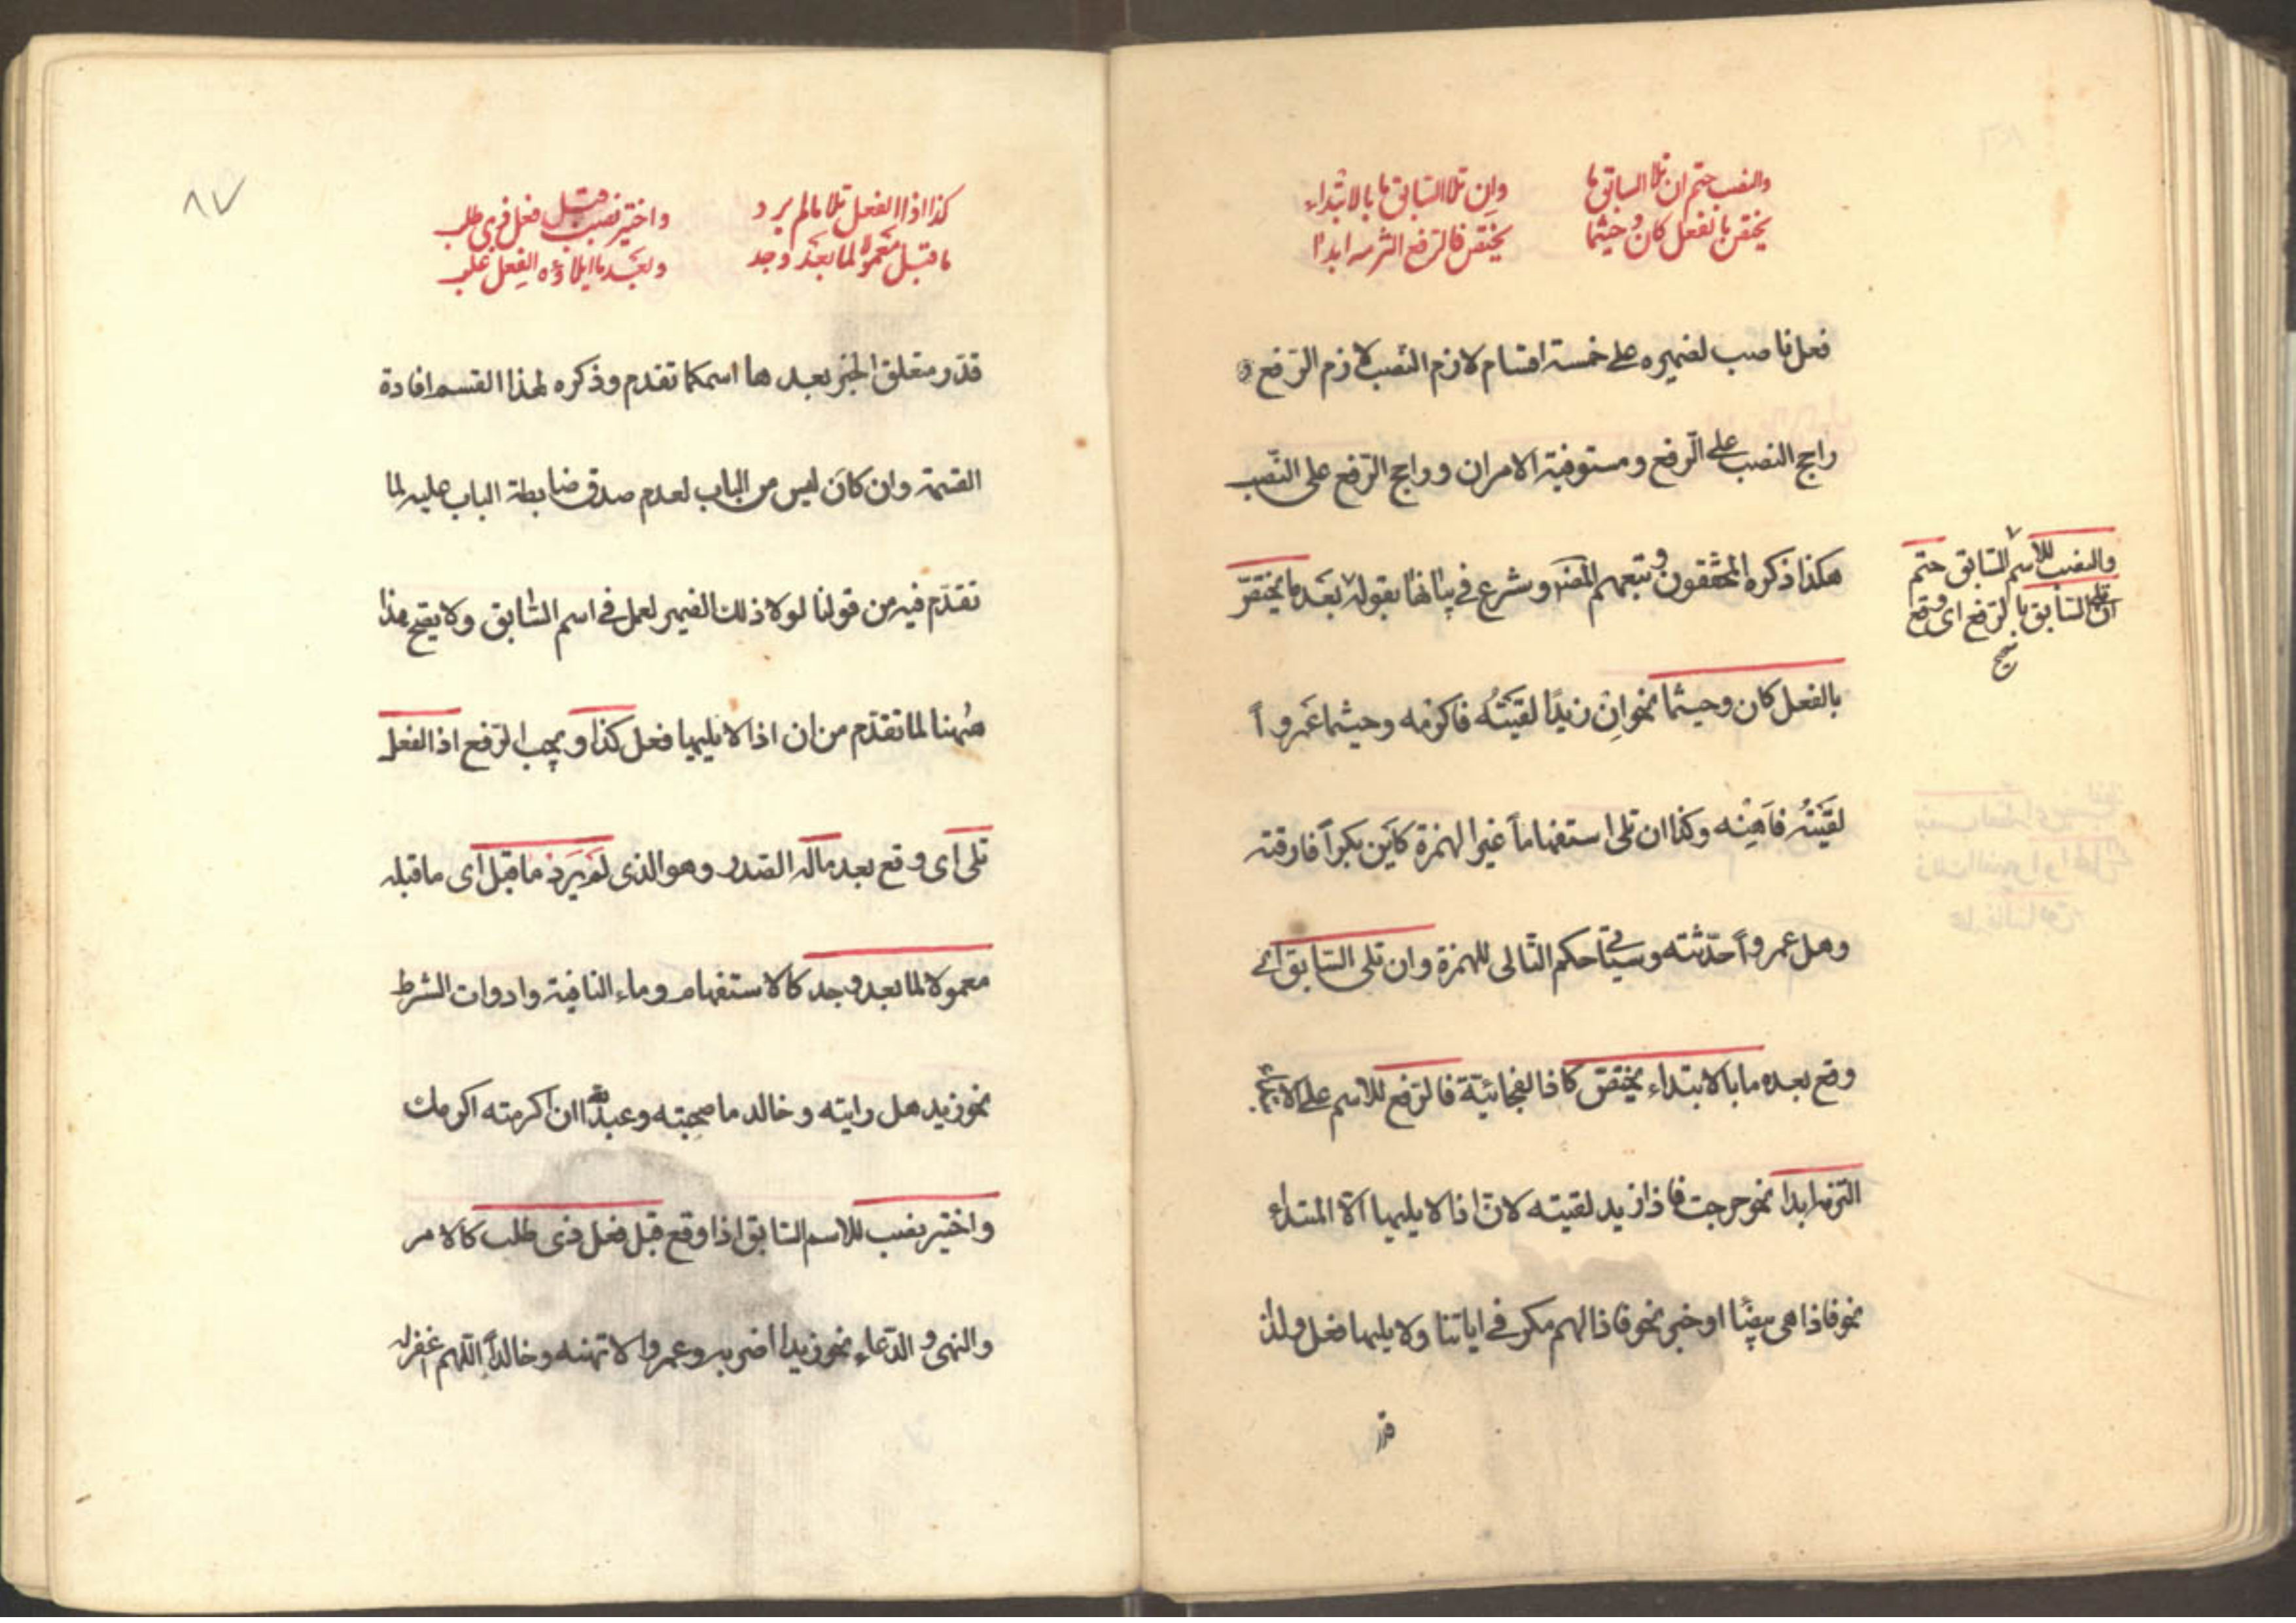 والنصب حتم ان تلا السابق ما
يختص بالفعل كان وحيثما
وان تلا السابق ما بالابتداء
يختص فالرفع التزمه ابدا
فعل ناصب لضميره على خمسة اقسام لازم النصب لازم الرفع و
راجح النصب على الرفع ومستوفيه الامران وراجح الرفع على النصب
هكذا ذكره المحققون وتبعهم المصنف وشرع في بيانها بقوله بعد ما يختص
والنصب للاسم السابق حتم
ان تلا السابق بالرفع اى وقع
صح
بالفعل كان وحيثما نحو ان زيدًا لقيته فاكرمه وحيثما عمروًا
لقيته فاهنه وكذا ان تلى استفهاماً غير الهمزة كاين بكراً فارقته
وهل عمرواً حدّثته وسيأتي حكم التالى للهمزة وان تلى السابق اى
وقع بعده ما بالابتداء يختصّ كاذا الفجائيّة فالرفع للاسم على الابتداء
التزمه ابدا نحو خرجت فاذا زيد لقيته لانّ اذا لا يليها الّا المبتداء
نحو فاذا هى بيضاء او خبر نحو فاذا لهم مكر في اياتنا ولا يليها فعل ولذا
قدّر
٨٧
كذا اذا الفعل تلا ما لم يرد
ما قبل معمولا لما بعد وجد
واختير نصب قبل فعل ذى طلب
وبعد ما ايلاؤه الفعل غلب
قدّر متعلق الخبر بعدها اسم كما تقدم وذكره لهذا القسم افادة
القسمة وان كان ليس من الباب لعدم صدق ضابطة الباب عليه لما
تقدّم فيه من قولنا لولا ذلك الضمير لعمل في اسم السّابق ولا يصح هذا
هُهنا لما تقدّم من ان اذا لا يليها فعل كذا ويجب الرّفع اذا الفعل
تلى اى وقع بعد ماله الصّدر وهو الذى لم يَرد ما قبل اى ما قبله
معمولا لما بعد وجد كالاستفهام وماء النافية وادوات الشرط
نحو زيد هل رايته وخالد ما صحبته وعبد الله ان اكرمته اكرمك
واختير نصب للاسم السابق اذا وقع قبل فعل ذى طلب كالامر
والنهى والدّعاء نحو زيدا اضربه وعمروا لا تهنه وخالداً اللّهم اغفر له